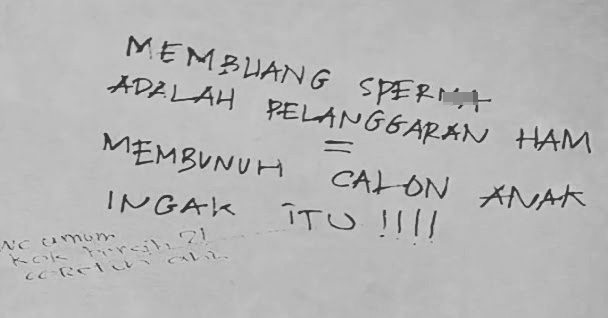 MEMBUANG SPERMA
ADALAH PELANGGARAN HAM
=
MEMBUNUH CALON ANAK
INGAK ITU !!!!
WC umum
kok bersih ?!